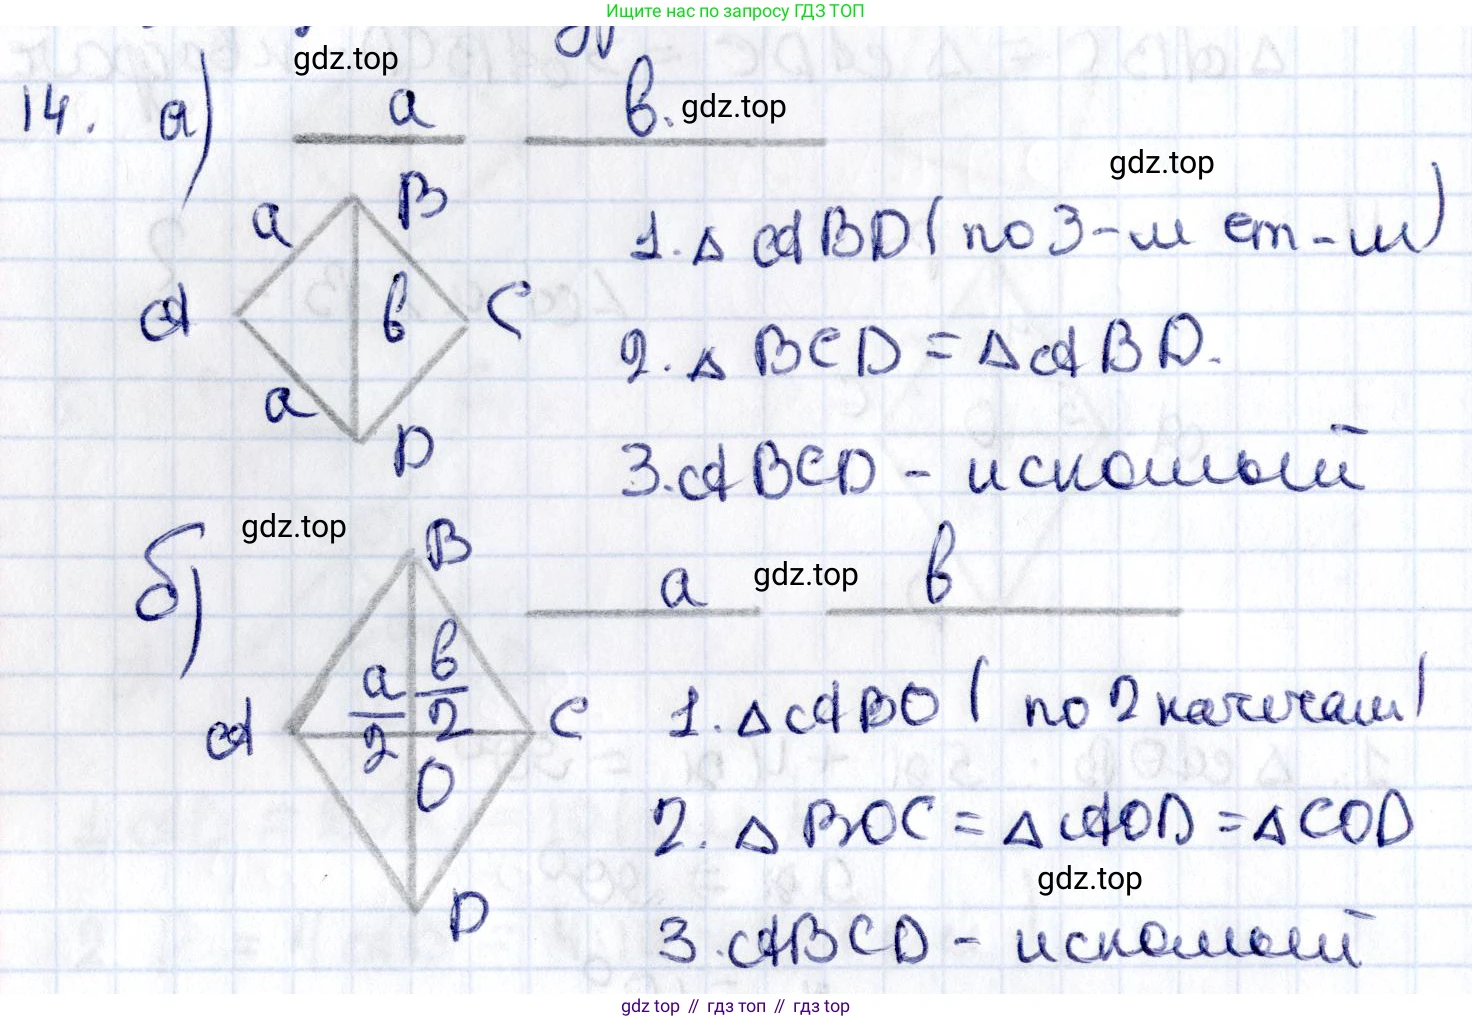 Ищите нас по запросу ГДЗ ТОП
gdz.top
14. а) a в. gdz.top
gdz.top
a B
1. Δ ABD (по 3-м ст-м)
A в C
2. Δ BCD = Δ ABD.
a
D
3. ABCD - искомый
gdz.top
б) B
a gdz.top в
a/2 в/2
A C
1. Δ ABO (по 2 катетам)
O
2. Δ BOC = Δ AOD = Δ COD
gdz.top
D
3. ABCD - искомый
gdz top // гдз топ // гдз top